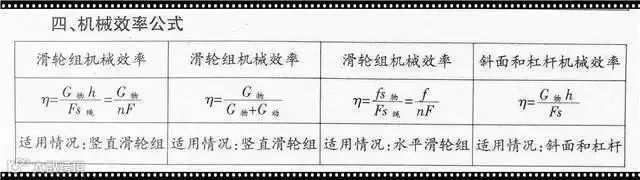 四、机械效率公式
滑轮组机械效率 滑轮组机械效率 滑轮组机械效率 斜面和杠杆机械效率
η=G物h/Fs绳=G物/nF η=G物/G物+G动 η=fs物/Fs绳=f/nF η=G物h/Fs
适用情况:竖直滑轮组 适用情况:竖直滑轮组 适用情况:水平滑轮组 适用情况:斜面和杠杆